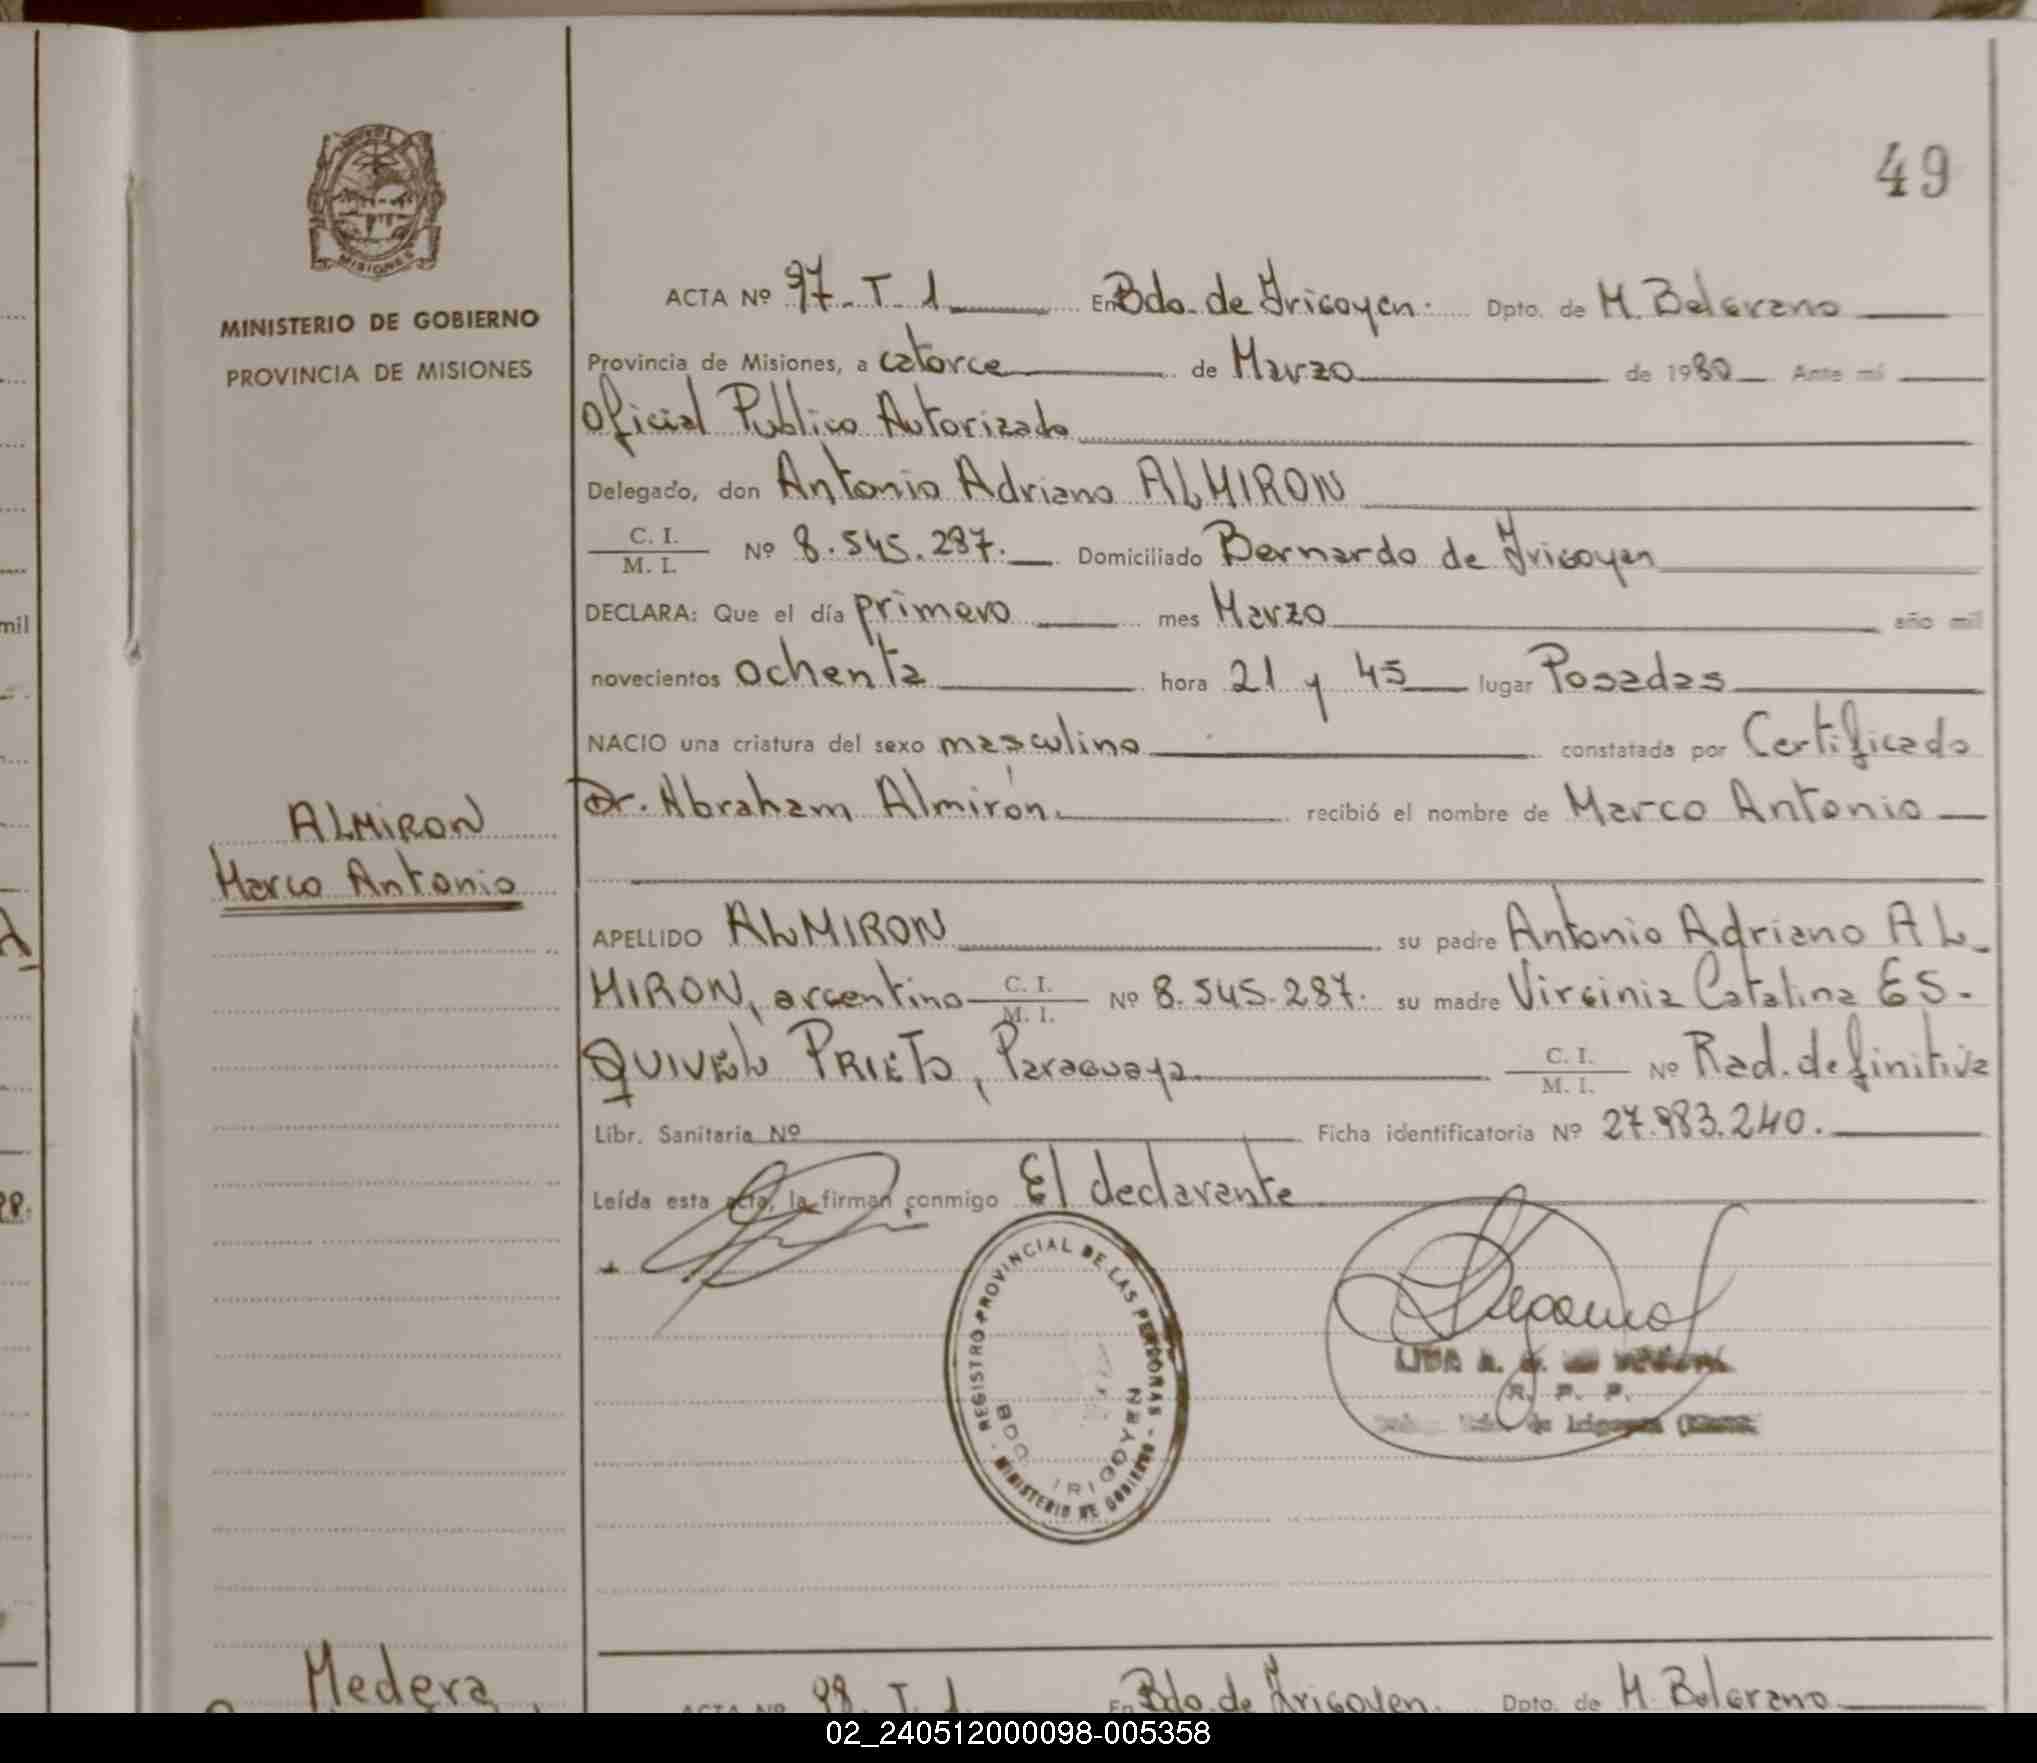 49
MISIONES
MINISTERIO DE GOBIERNO
PROVINCIA DE MISIONES
ACTA Nº 97 - T - 1 En Bdo. de Irigoyen. Dpto. de M. Belgrano
Provincia de Misiones, a catorce de Marzo de 1980 Ante mí
Oficial Publico Autorizado
Delegado, don Antonio Adriano ALMIRON
C. I.
M. I. Nº 8.545.287. Domiciliado Bernardo de Irigoyen
DECLARA: Que el día primero mes Marzo año mil
novecientos ochenta hora 21 y 45 lugar Posadas
NACIO una criatura del sexo masculino constatada por Certificado
Dr. Abraham Almirón. recibió el nombre de Marco Antonio
ALMIRON
Marco Antonio
APELLIDO ALMIRON su padre Antonio Adriano AL-
MIRON, argentino C. I. M. I. Nº 8.545.287. su madre Virginia Catalina ES-
QUIVEL PRIETO, Paraguaya C. I. M. I. Nº Rad. definitiva
Libr. Sanitaria Nº Ficha identificatoria Nº 27.983.240.
Leída esta acta, la firman conmigo El declarante
REGISTRO PROVINCIAL DE LAS PERSONAS - MINISTERIO DE GOBIERNO -
BDO. IRIGOYEN
R. P. P.
Medera
ACTA Nº 98 T. 1 En Bdo. de Irigoyen. Dpto. de M. Belgrano
mil
02_240512000098-005358